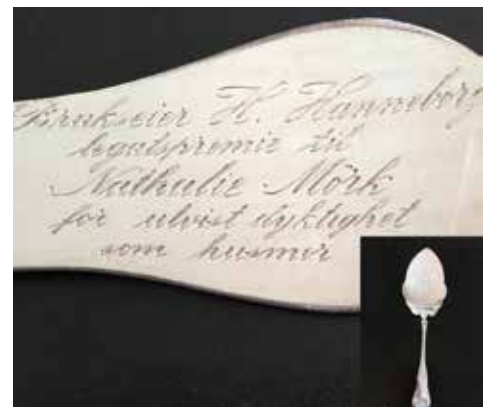 Brukseier H. Hanneborg
legatspremie til
Nathalie Mörk
for utvist dyktighet
som husmor